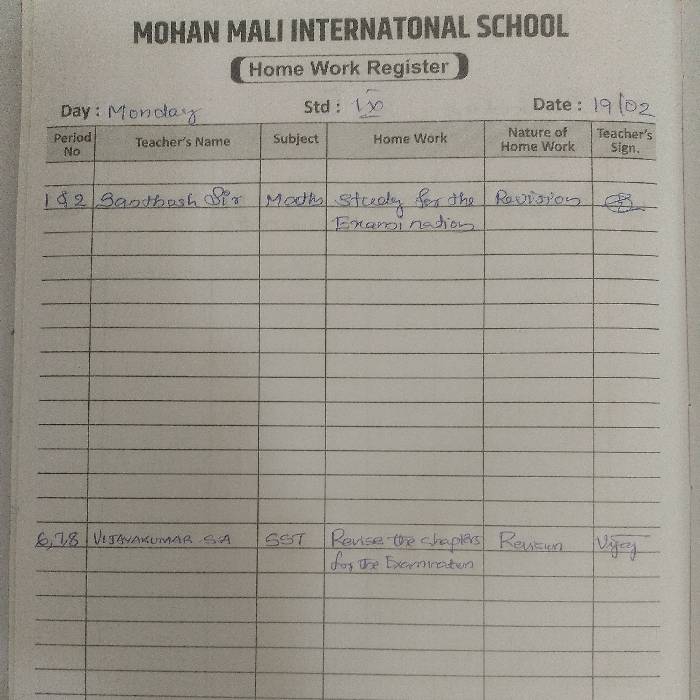 MOHAN MALI INTERNATONAL SCHOOL
Home Work Register
Day : Monday Std : IX Date : 19/02
Period No Teacher's Name Subject Home Work Nature of Home Work Teacher's Sign.
1 & 2 Santhosh Sir Maths Study for the Revision
Examination
6,7,8 VIJAYAKUMAR S.A SST Revise the chapters Revision Vijay
for the Examination